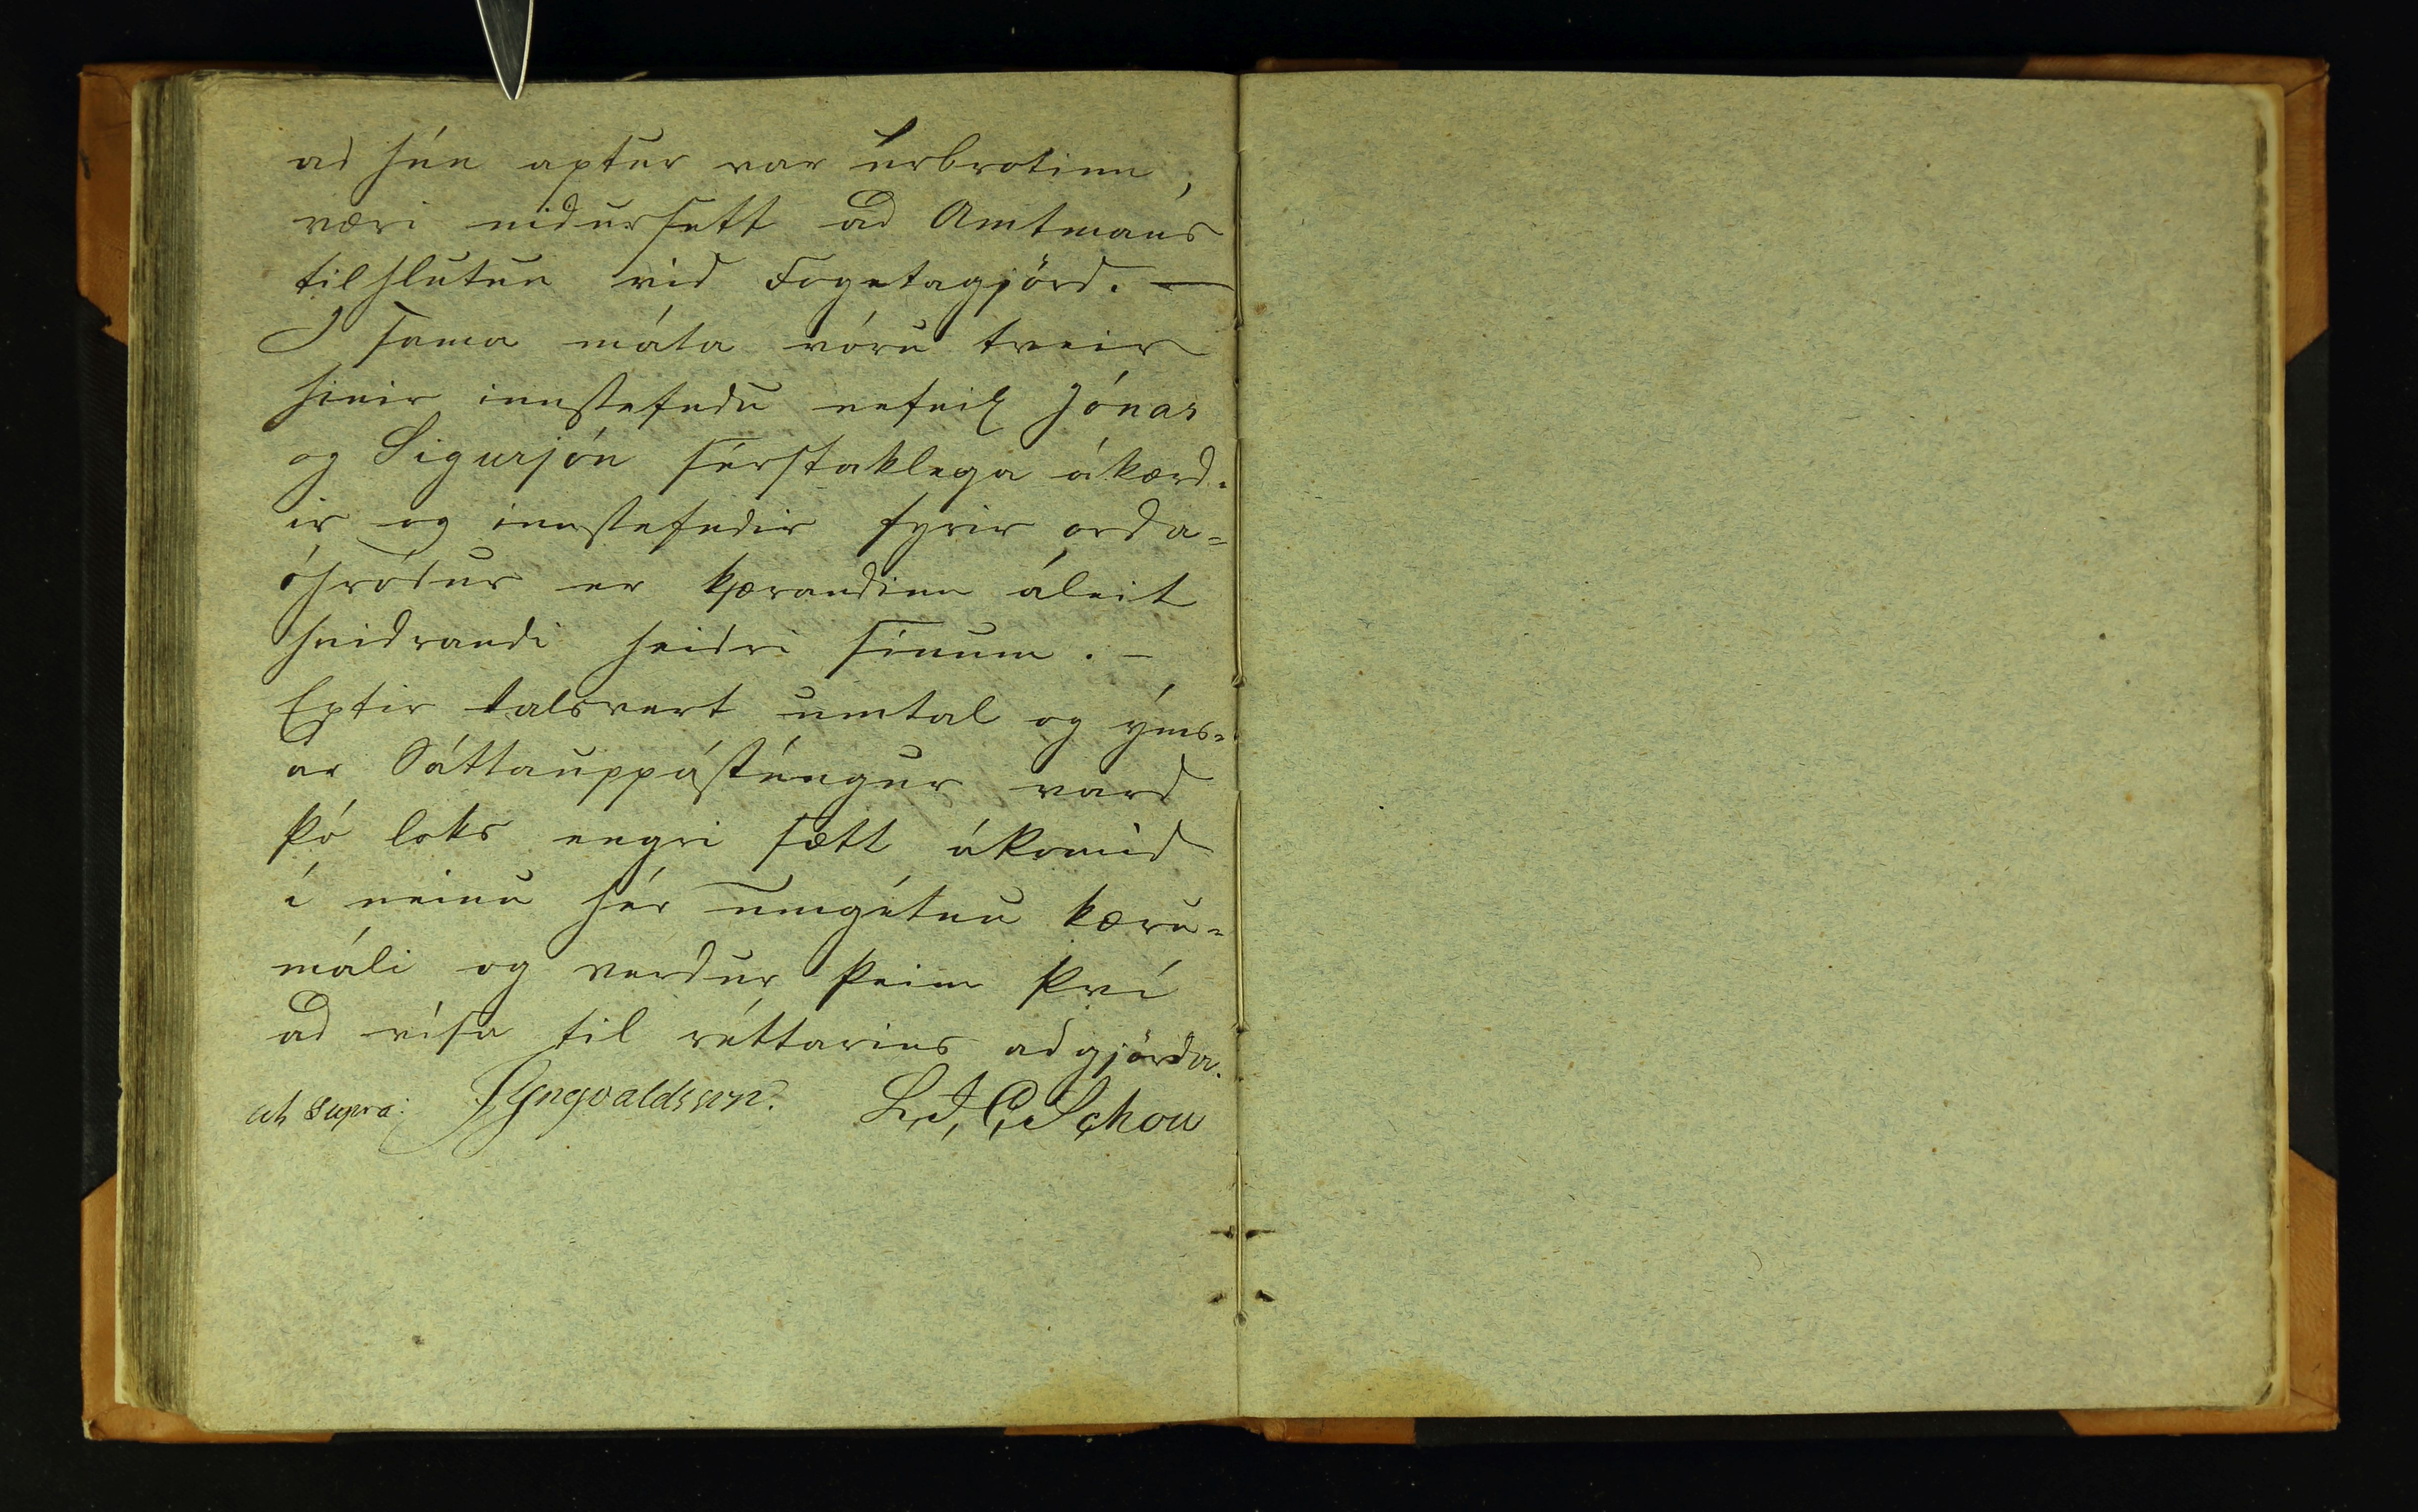 ad hún aptur var úrbrotinn,
væri nidursett ad Amtmans
tilhlutun vid Fogetagjörd. —
I sama máta vóru tveir
hinir innstefndu nefnil Jónas
og Sigurjón sérstaklega ákærd-
ir og innstefndir fyrir orda-
óhródur er kjærandinn áleit
hnidrandi heidri sínum. —
Eptir talsvert umtal og ýms-
ar Sáttauppástúngur vard
þó loks engri sætt ákomid
í neinu hér umgétnu kæru-
máli og verdur þeim því
ad vísa til réttarins adgjörda.
ut supra. JYngvaldsson. L, J, C, Schou